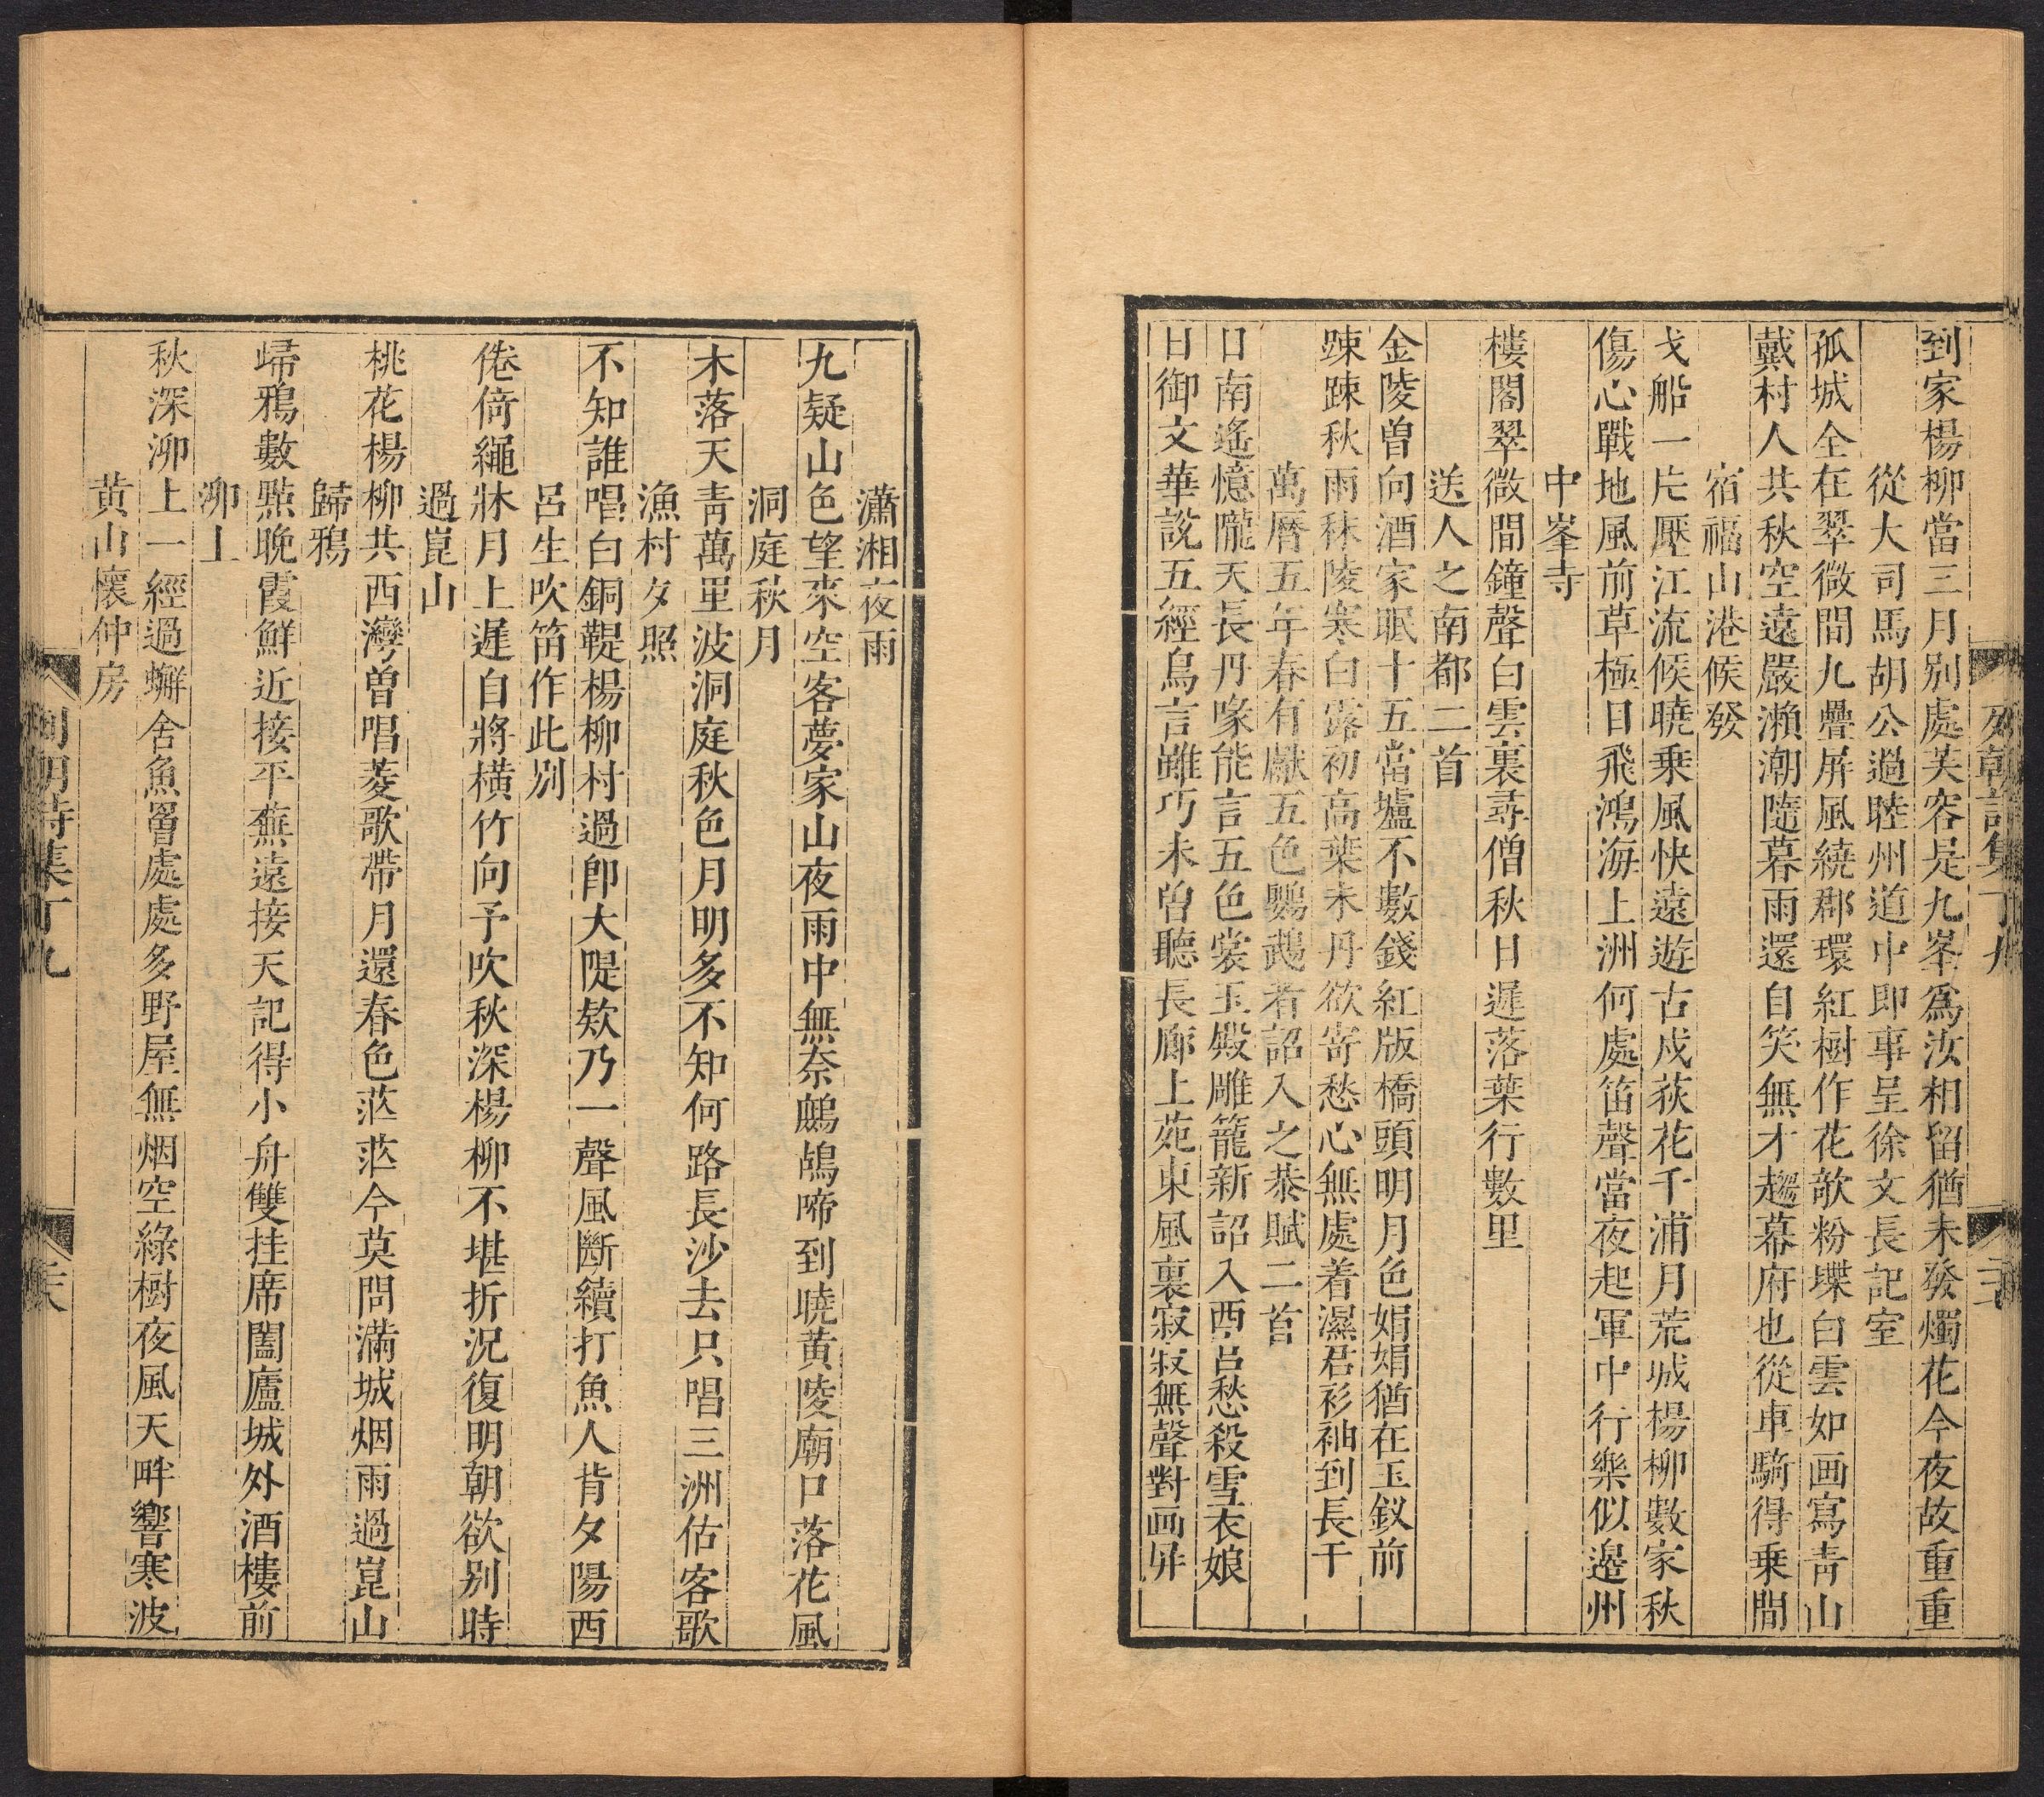 到家楊柳當三月别處芙容是九峯爲汝相留猶未發燭花今夜故重重
從大司馬胡公過睦州道中即事呈徐文長記室
孤城全在翠微間九疊屏風繞郡環紅樹作花欹粉堞白雲如画寫青山
戴村人共秋空遠嚴瀨潮隨暮雨還自笑無才趨幕府也從車騎得乗閒
宿福山港候發
戈船一片壓江流候曉乗風快遠遊古戍荻花千浦月荒城楊柳數家秋
傷心戰地風前草極目飛鴻海上洲何處笛聲當夜起軍中行樂似邉州
中峯寺
樓閣翠微間鐘聲白雲裏尋僧秋日遲落葉行數里
送人之南都二首
金陵曽向酒家眠十五當壚不數錢紅版橋頭明月色娟娟猶在玉釵前
踈踈秋雨秣陵寒白露初高葉未丹欲寄愁心無處着濕君衫袖到長干
萬曆五年春有獻五色鸚鵡者詔入之恭賦二首
日南遙憶隴天長丹喙能言五色裳玉殿雕籠新詔入西宮愁殺雪衣娘
日御文華說五經鳥言雖巧未曽聽長廊上苑東風裏寂寂無聲對画屏
列朝詩集丁九
瀟湘夜雨
九疑山色望來空客夢家山夜雨中無奈鷓鴣啼到曉黄陵廟口落花風
洞庭秋月
木落天青萬里波洞庭秋色月明多不知何路長沙去只唱三洲估客歌
漁村夕照
不知誰唱白銅鞮楊柳村過卽大隄欸乃一聲風斷續打魚人背夕陽西
呂生吹笛作此别
倦倚繩牀月上遲自將横竹向予吹秋深楊柳不堪折況復明朝欲别時
過崑山
桃花楊柳共西灣曽唱菱歌帶月還春色茫茫今莫問滿城烟雨過崑山
歸鴉
歸鴉數點晚霞鮮近接平蕪遠接天記得小舟雙挂席闔廬城外酒樓前
泖上
秋深泖上一經過蠏舍魚罾處處多野屋無烟空綠樹夜風天畔響寒波
黄山懷仲房
列朝詩集丁九